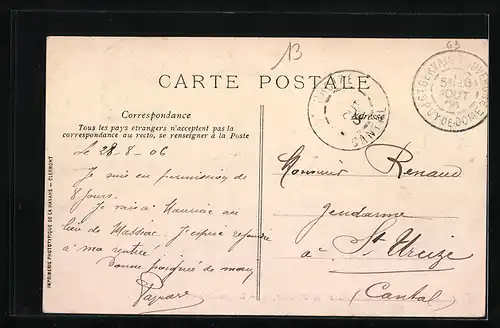 13
63
CARTE POSTALE
Correspondance
Adresse
Tous les pays étrangers n'acceptent pas la
correspondance au recto, se renseigner à la Poste
Le 28-8-06
Je suis en permission de
8 jours.
Je suis à Mauriac au
lieu de Massiac. J'espère
à ma rentrée
Bonne poignée de main
Monsieur Renaud
Gendarme
à St Urcize
(Cantal)
CANTAL
PUY-DE-DOME
AOUT
06
IMPRIMERIE PHOTOTYPIQUE DE LA HAYANE - CLERMONT